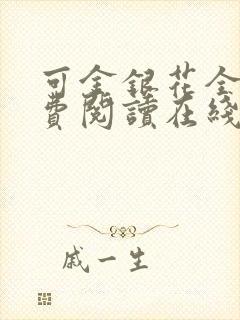 可金銀花全
費閱讀在綫
戚一生